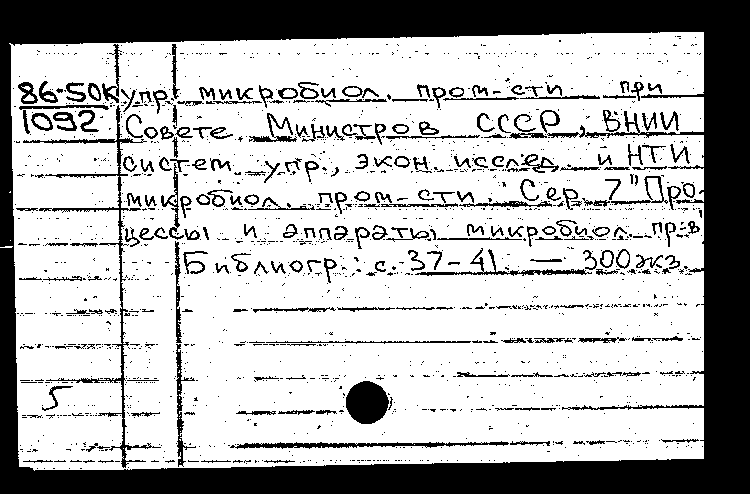 86-50к упр. микробиол. пром-сти при
1092 Совете Министров СССР, ВНИИ
систем упр., экон. исслед. и НТИ
микробиол. пром-сти. Сер. 7 "Про-
цессы и аппараты микробиол. пр-в"
Библиогр.: с. 37-41. — 300 экз.
5